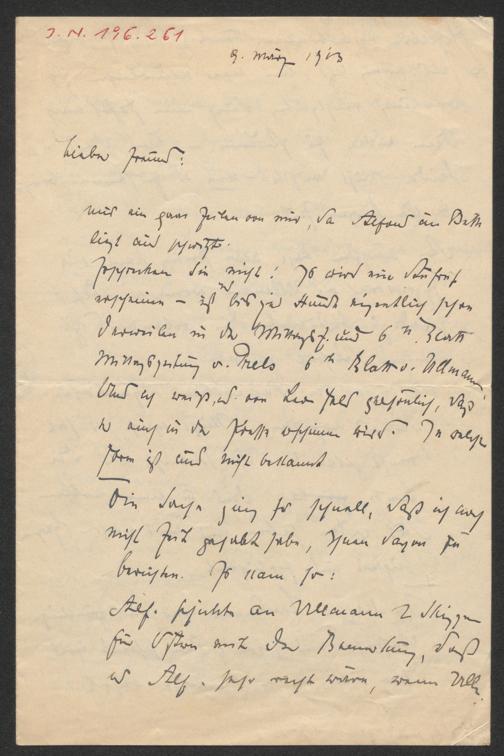 J. N. 196.261
9. März 1913
Lieber Freund:
nur ein paar Zeilen von mir, da Alfons im Bett
liegt und schwitzt.
Erschrecken Sie nicht! Es wird ein Aufruf
erscheinen – ist bis zur Stunde eigentlich schon
in der Mittagsz. und 6 Blatt
Mittagszeitung v. 6 Blatt v. Ullmann
Und ich weiß, daß
er auch in der Presse erscheinen wird. In welcher
Form ist uns nicht bekannt
Die Sache ging so schnell, daß ich auch
nicht Zeit gehabt habe, Ihnen davon zu
berichten. Es kam so:
Alf. schickte an Ullmann 2 Skizzen
für Ostern mit der Bemerkung, daß
es Alf. sehr recht wäre, wenn Ullm.